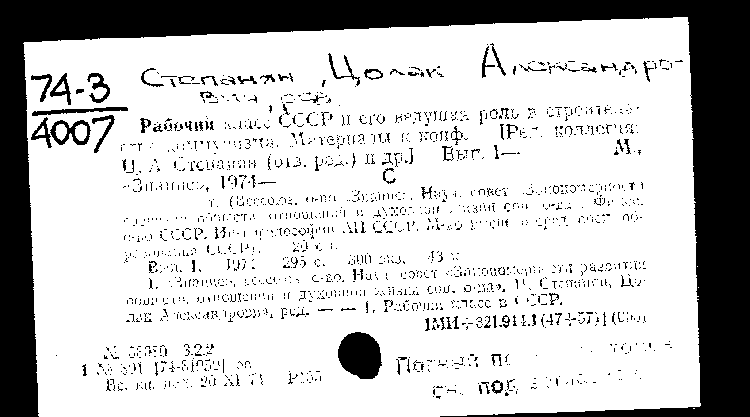 74-3
4007
Степанян, Цолак Александро-
вич, ред.
Рабочий класс СССР и его ведущая роль в строитель-
стве коммунизма. Материалы к конф. [Ред. коллегия:
Ц. А. Степанян (отв. ред.) и др.] Вып. 1— М.,
«Знание», 1974—
С
т. (Всесоюз. о-во «Знание». Науч. совет «Закономерности
отношений и духовной жизни соц. о-ва». Филос.
о-во СССР. Ин-т философии АН СССР. М-во высш. и сред. спец. об-
разования СССР). 20 см.
Вып. 1. 1974 295 с. 800 экз. 43 к.
1. «Знание», всесоюз. о-во. Науч. совет «Закономерности развития
отношений и духовной жизни соц. о-ва». II. Степанян, Цо-
лак Александрович, ред. — — 1. Рабочий класс в СССР.
1МИ+321.914.1(47+57)](
№ 3.2.2
1 № 391 [74-
Вс. кн. пал. 20 XI 74
Полный
см. под